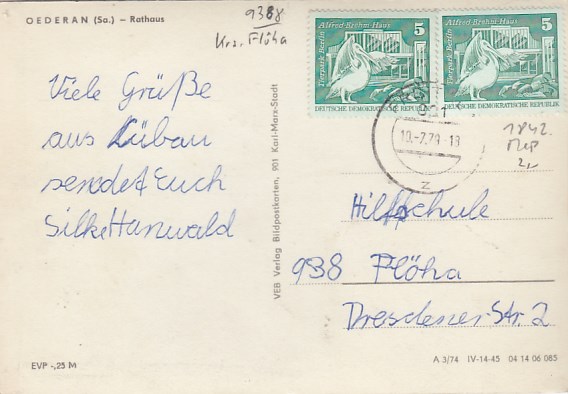 OEDERAN (Sa.) – Rathaus
9388
Krs. Flöha
Tierpark Berlin
Alfred-Brehm-Haus
5
DEUTSCHE DEMOKRATISCHE REPUBLIK
Tierpark Berlin
Alfred-Brehm-Haus
5
DEUTSCHE DEMOKRATISCHE REPUBLIK
10.-7.79-18
z
1842.
2,-
Viele Grüße
aus Lübau
sendet Euch
Silke Hanwald
VEB Verlag Bildpostkarten, 901 Karl-Marx-Stadt
Hilfschule
938 Flöha
Dresdener-Str. 2
EVP -,25 M
A 3/74 IV-14-45 04 14 06 085